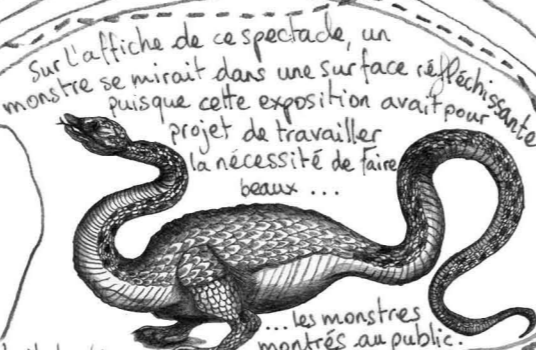 Sur l'affiche de ce spectacle, un
monstre se mirait dans une surface réfléchissante
puisque cette exposition avait pour
projet de travailler
la nécessité de faire
beaux ...
...les monstres
montrés au public.